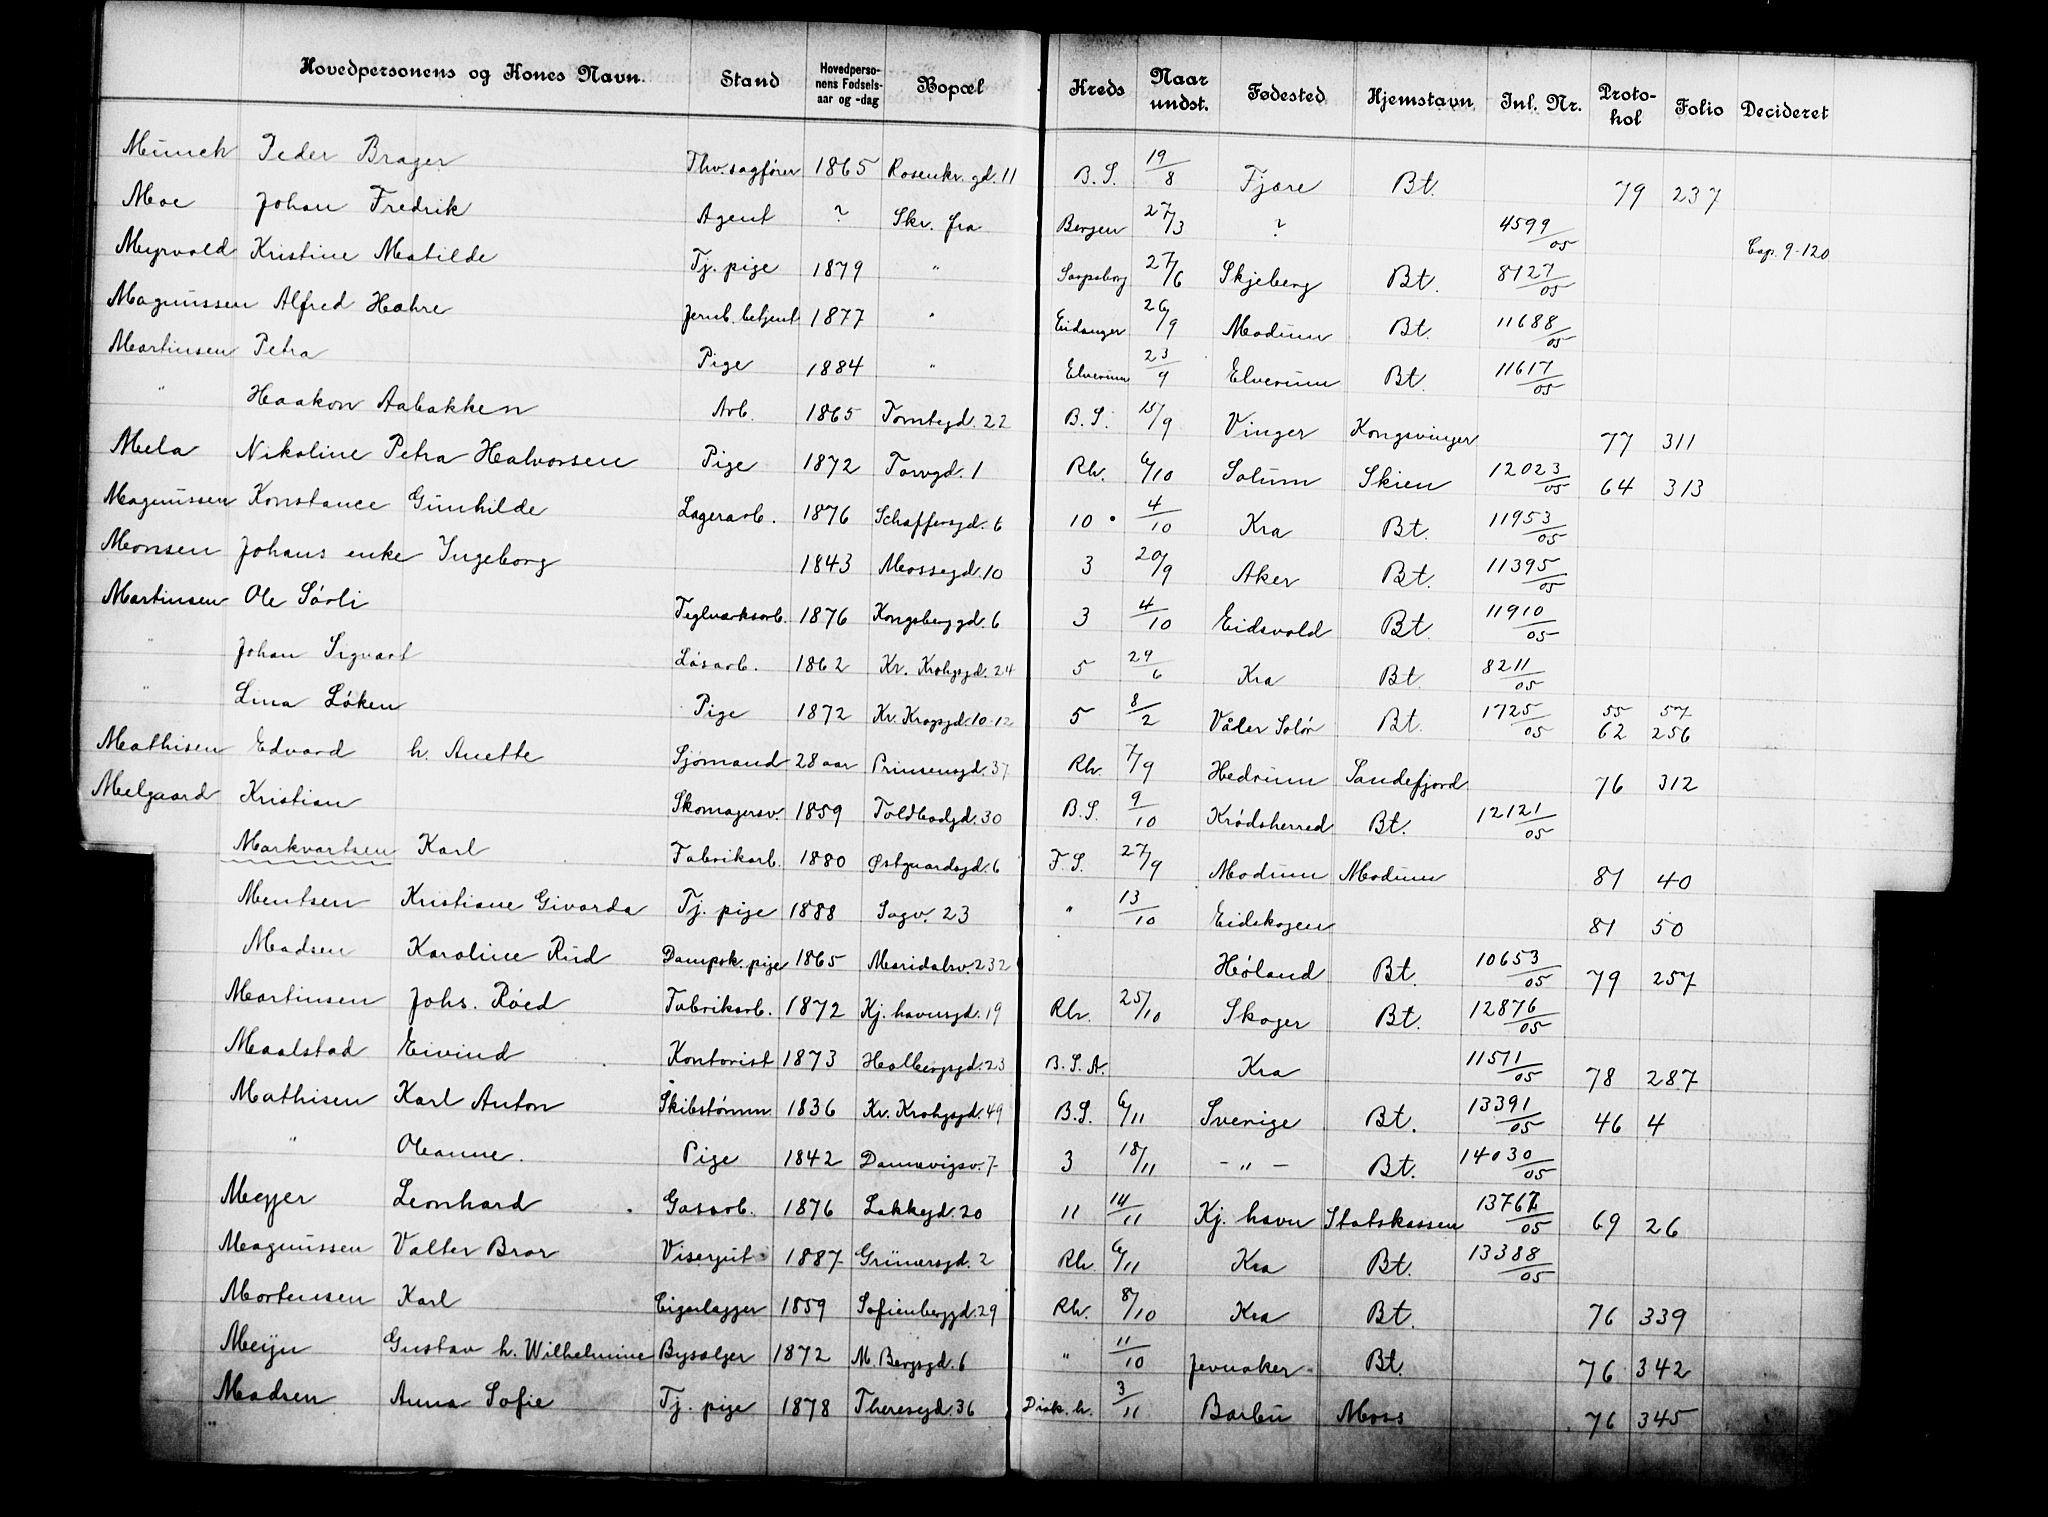 Hovedpersonens og Kones Navn. Stand Hovedpersonens Fødselsaar og -dag Bopæl Kreds Naar undst. Fødested Hjemstavn Inl. Nr. Protokol Folio Decideret
Münch Peder Brager Thv. sagfører 1865 Rosenkr. gd. 11 B. S. 19/8 Fjære Bt. 79 237
Moe Johan Fredrik Agent ? Skr. fra Bergen 27/3 ? 4599/05 Cop. 9-120
Myrvold Kristine Matilde Tj. pige 1879 " Sarpsborg 27/6 Skjeberg Bt. 8127/05
Magnussen Alfred Hahre Jernb. betjent 1877 " Eidanger 26/9 Modum Bt. 11688/05
Martinsen Petra Pige 1884 " Elverum 23/9 Elverum Bt. 11617/05
" Haakon Aabakken Arb. 1865 Tomtegd. 22 B. S. 15/9 Vinger Kongsvinger 77 311
Mela Nikoline Petra Halvorsen Pige 1872 Torvgd. 1 Rh. 6/10 Solum Skien 12023/05 64 313
Magnussen Konstance Gunhilde Lagerarb. 1876 Schaffersgd. 6 10 4/10 Kra Bt. 11953/05
Monsen Johans enke Ingeborg 1843 Mossegd. 10 3 20/9 Aker Bt. 11395/05
Martinsen Ole Sörli Teglværksarb. 1876 Kongsberggd. 6 3 4/10 Eidsvold Bt. 11910/05
" Johan Sigvart Løsarb. 1862 Kr. Krohgsgd. 24 5 29/6 Kra Bt. 8211/05
" Lina Löken Pige 1872 Kr. Krogsgd. 10-12 5 8/2 Våler Solör Bt. 1725/05 55 57 62 256
Mathisen Edvard h. Anette Sjömand 28 aar Prinsensgd. 37 Rh. 7/9 Hedrum Sandefjord 76 312
Melgaard Kristian Skomagersv. 1859 Toldbodgd. 30 B. S. 9/10 Krödsherred Bt. 12121/05
Markvartsen Karl Fabrikarb. 1880 Østgaardsgd. 6 F. S. 27/9 Modum Modum 81 40
Mentsen Kristiane Givarda Tj. pige 1888 Sagv. 23 " 13/10 Eidskogen 81 50
Madsen Karoline Rud Dampsk. pige 1865 Maridalsv. 232 Höland Bt. 10653/05 79 257
Martinsen Johs. Röed Fabrikarb. 1872 Kj. havnsgd. 19 Rh. 25/10 Skoger Bt. 12876/05
Maalstad Eivind Kontorist 1873 Holbergsgd. 23 B. S. A. Kra 11511/05 78 287
Mathisen Karl Anton Skibstömm 1836 Kr. Krohgsgd. 49 B. S. 6/11 Sverige Bt. 13391/05 46 4
" Oleanne. Pige 1842 Danmevigsv. 7 3 18/11 - " - Bt. 14030/05
Meyer Leonhard Gasarb. 1876 Lakkegd. 20 11 14/11 Kj. havn Statskassen 13767/05 69 26
Magnussen Valter Bror Visergut 1887 Grünersgd. 2 Rh. 6/11 Kra Bt. 13388/05
Mortensen Karl Cigarlægger 1859 Sofienberggd. 29 Rh. 8/10 Kra Bt. 76 339
Meijn Gustav h. Wilhelmine Bysælger 1872 M. Bergsgd. 6 " 11/10 Jevnaker Bt. 76 342
Madsen Anna Sofie Tj. pige 1878 Theresegd. 36 Diak. h. 3/11 Barbu Moss 76 345
"